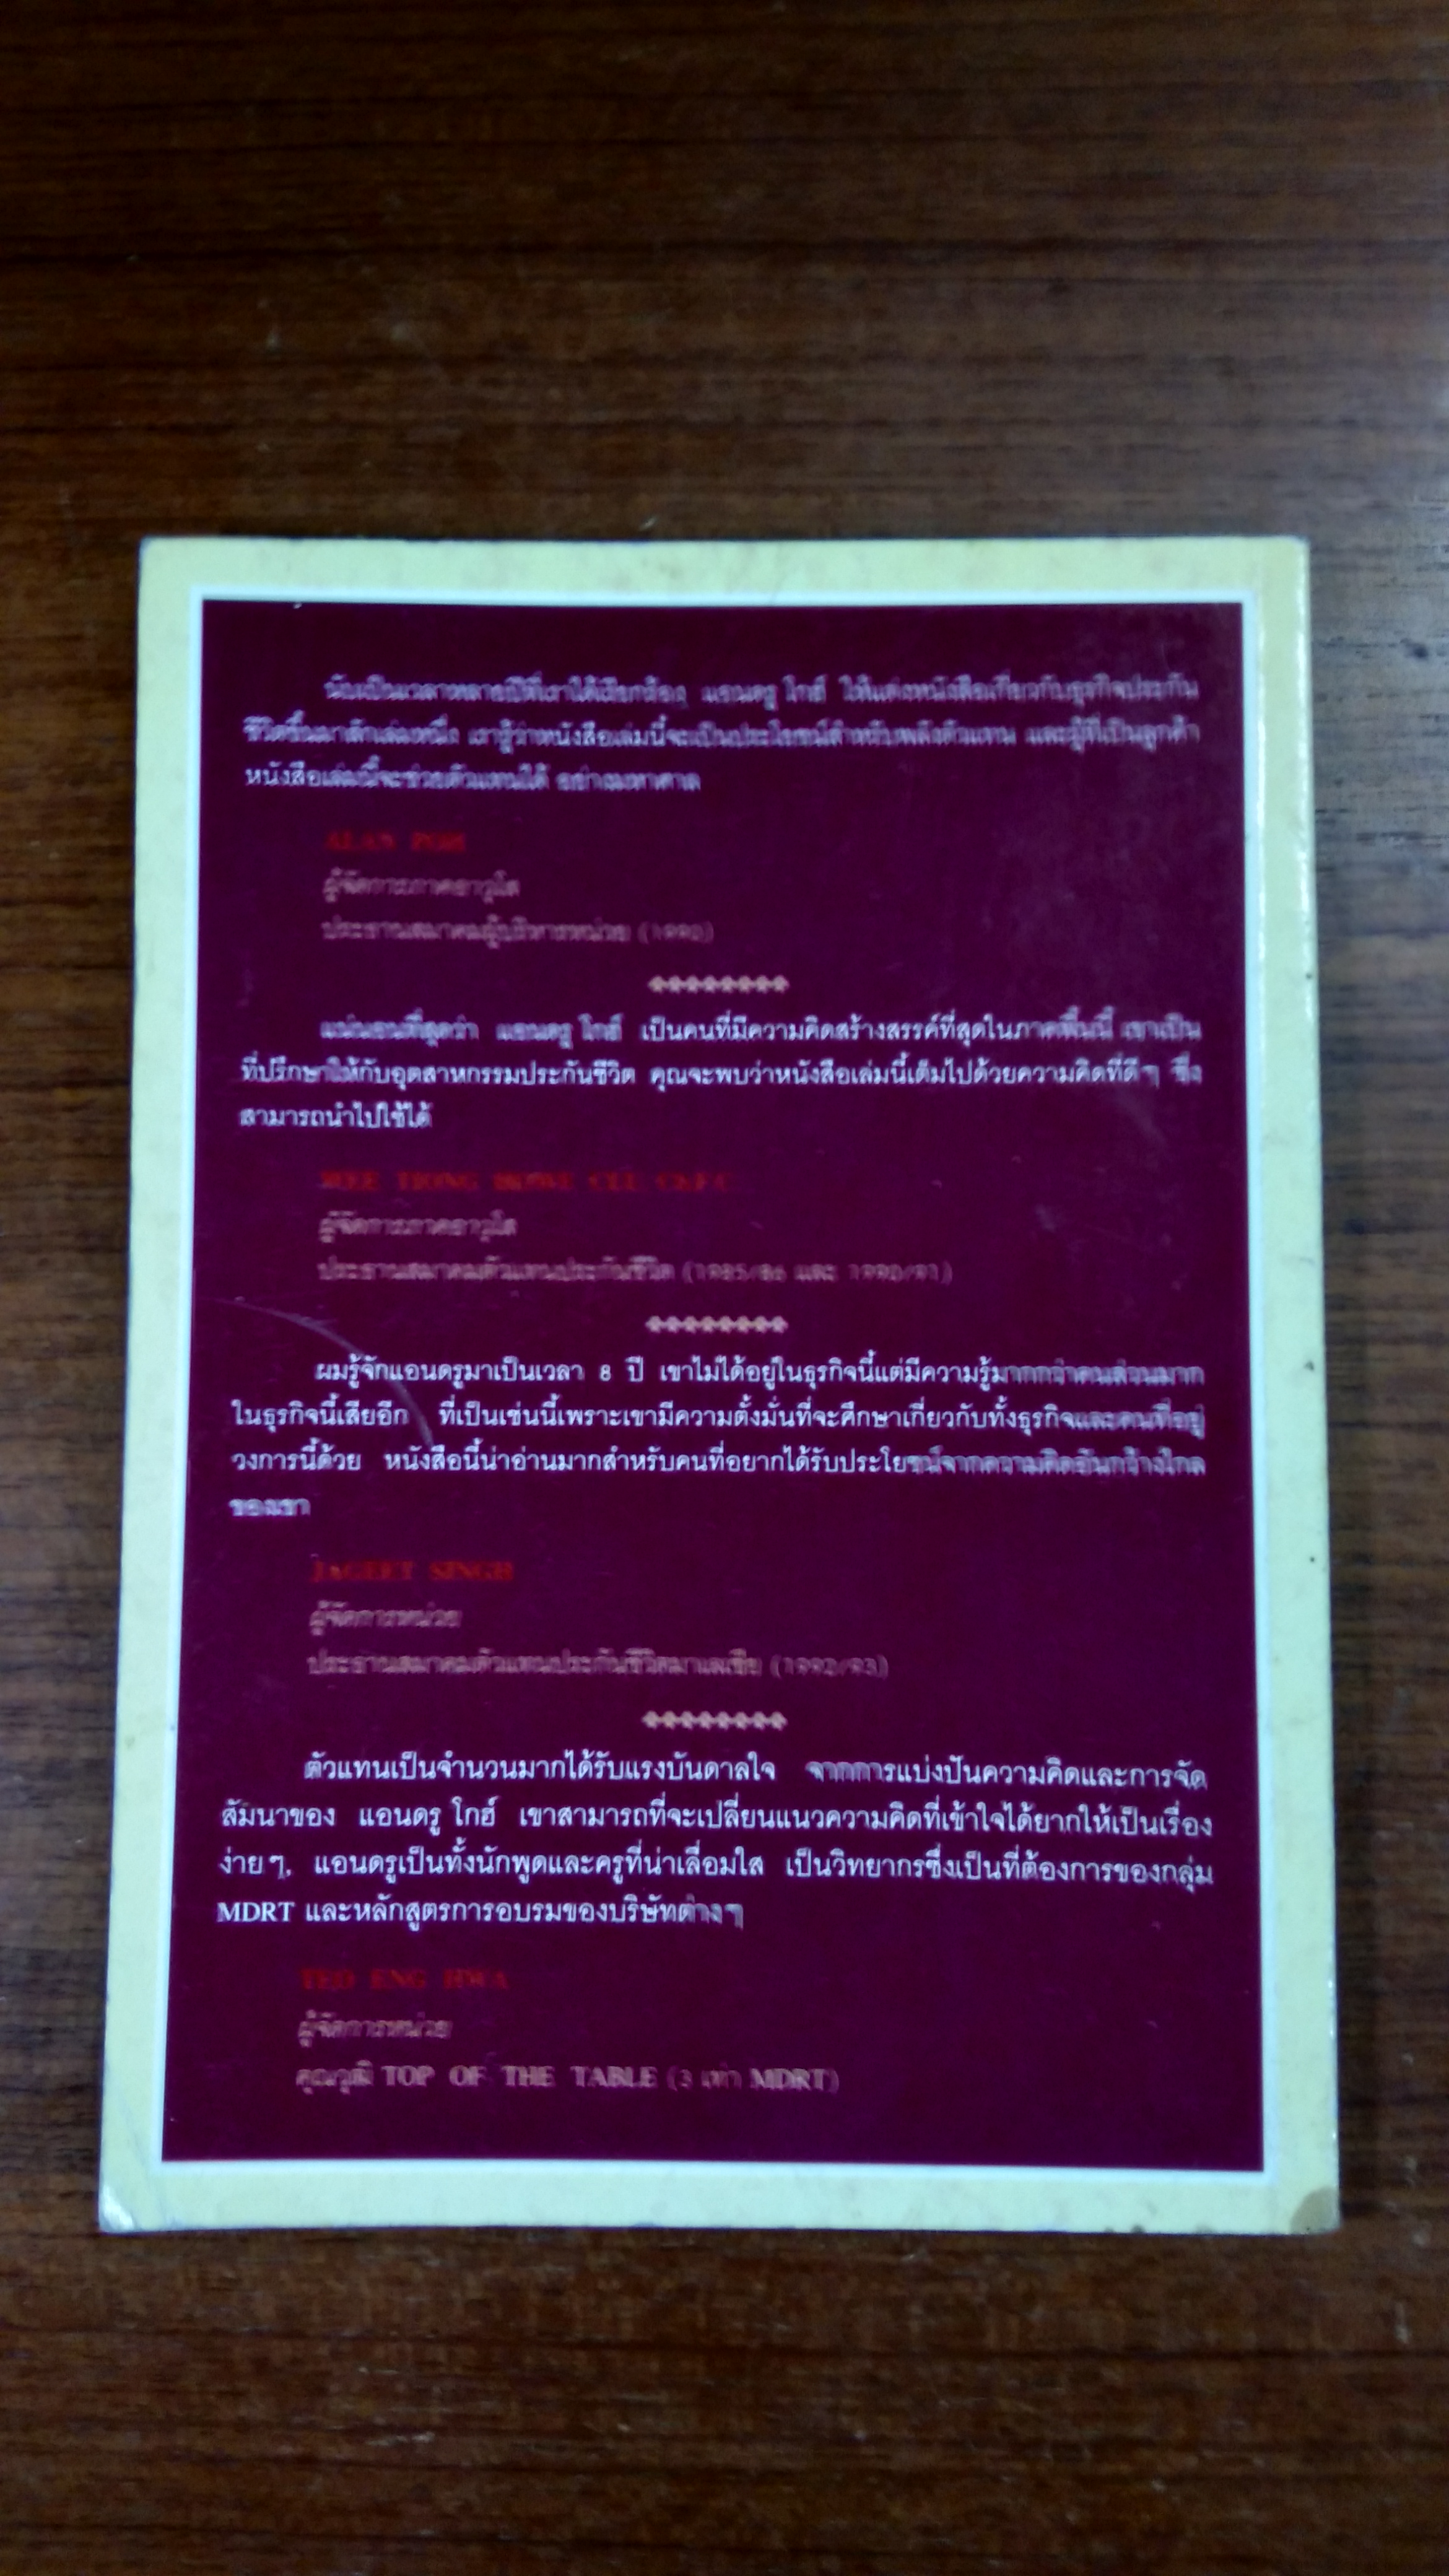 นับเป็นเวลาหลายปีที่เราได้เรียกร้อง แอนดรู โกฮ์ ให้แต่งหนังสือเกี่ยวกับธุรกิจประกัน
ชีวิตขึ้นมาสักเล่มหนึ่ง เรารู้ว่าหนังสือเล่มนี้จะเป็นประโยชน์สำหรับพลังตัวแทน และผู้ที่เป็นลูกค้า
หนังสือเล่มนี้จะช่วยตัวแทนได้ อย่างมหาศาล
ALAN
ผู้จัดการภาคอาวุโส
ประธานสมาคมผู้บริหารหน่วย (1990)
แน่นอนที่สุดว่า แอนดรู โกฮ์ เป็นคนที่มีความคิดสร้างสรรค์ที่สุดในภาคพื้นนี้ เขาเป็น
ที่ปรึกษาให้กับอุตสาหกรรมประกันชีวิต คุณจะพบว่าหนังสือเล่มนี้เต็มไปด้วยความคิดที่ดีๆ ซึ่ง
สามารถนำไปใช้ได้
WEE CLU
ผู้จัดการภาคอาวุโส
ประธานสมาคมตัวแทนประกันชีวิต (1985/86 และ 1990/91)
ผมรู้จักแอนดรูมาเป็นเวลา 8 ปี เขาไม่ได้อยู่ในธุรกิจนี้แต่มีความรู้มากกว่าคนส่วนมาก
ในธุรกิจนี้เสียอีก ที่เป็นเช่นนี้เพราะเขามีความตั้งมั่นที่จะศึกษาเกี่ยวกับทั้งธุรกิจและคนที่อยู่
วงการนี้ด้วย หนังสือนี้น่าอ่านมากสำหรับคนที่อยากได้รับประโยชน์จากความคิดอันกว้างไกล
ของเขา
JAGEET SINGH
ผู้จัดการหน่วย
ประธานสมาคมตัวแทนประกันชีวิตมาเลเซีย (1992/93)
ตัวแทนเป็นจำนวนมากได้รับแรงบันดาลใจ จากการแบ่งปันความคิดและการจัด
สัมนาของ แอนดรู โกฮ์ เขาสามารถที่จะเปลี่ยนแนวความคิดที่เข้าใจได้ยากให้เป็นเรื่อง
ง่ายๆ, แอนดรูเป็นทั้งนักพูดและครูที่น่าเลื่อมใส เป็นวิทยากรซึ่งเป็นที่ต้องการของกลุ่ม
MDRT และหลักสูตรการอบรมของบริษัทต่างๆ
TEO ENG HWA
ผู้จัดการหน่วย
คุณวุฒิ TOP OF THE TABLE (3 เท่า MDRT)